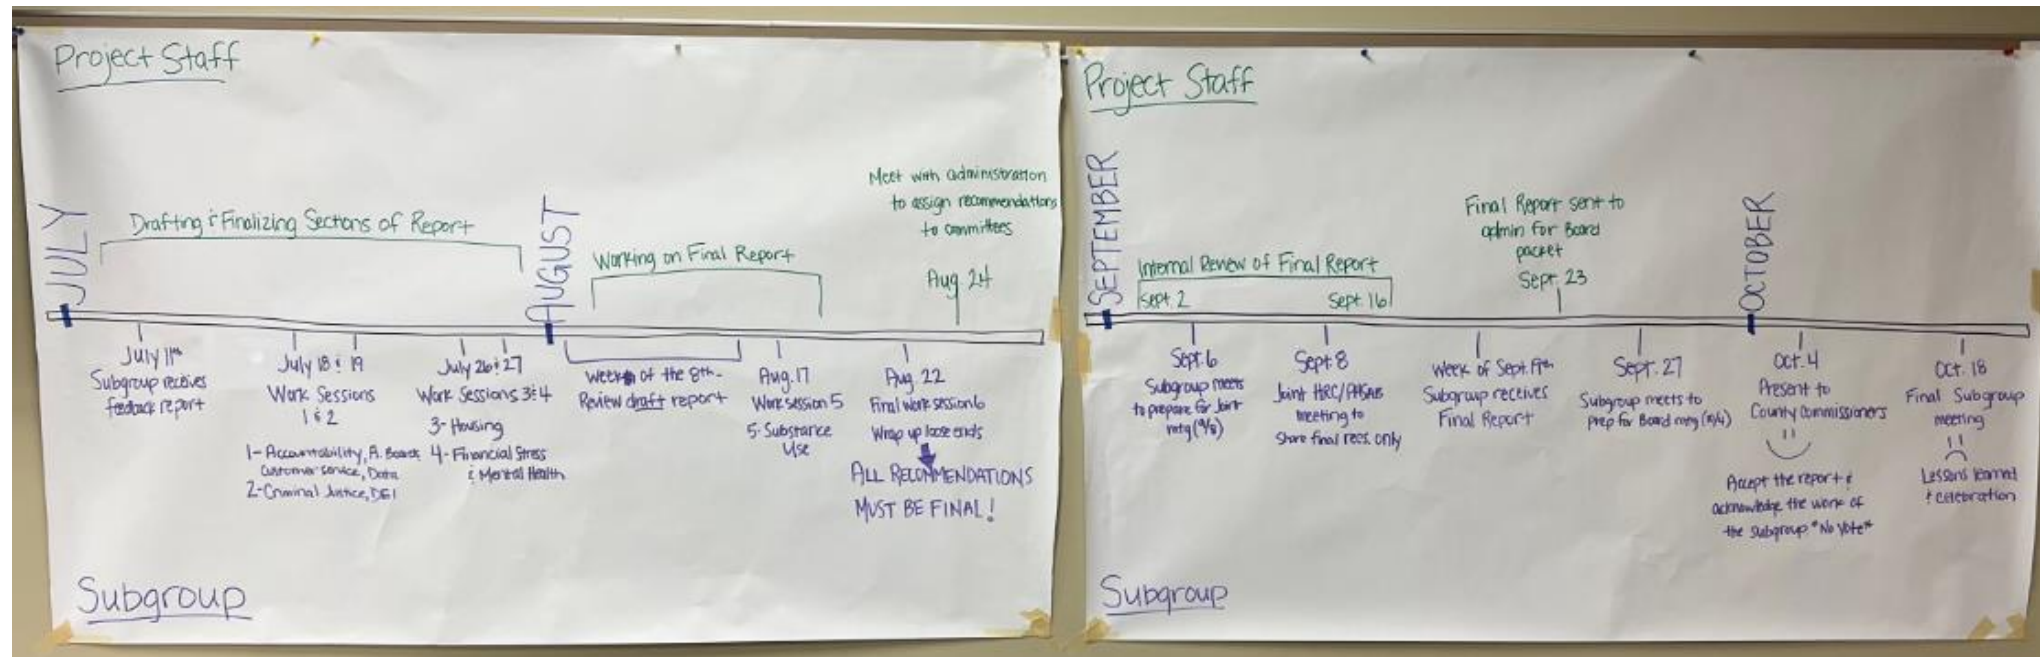 Project Staff
JULY
Drafting & Finalizing Sections of Report
AUGUST
Working on Final Report
Meet with administration
to assign recommendations
to committees
Aug. 24
July 11th
Subgroup receives
feedback report
July 18 & 19
Work Sessions
1 & 2
1- Accountability, A. Board,
Customer service, Data
2- Criminal Justice, DEI
July 26 & 27
Work Sessions 3 & 4
3- Housing
4- Financial Stress
& Mental Health
Week of the 8th-
Review draft report
Aug. 17
Work session 5
5- Substance
Use
Aug. 22
Final work session 6
Wrap up loose ends
ALL RECOMMENDATIONS
MUST BE FINAL!
Subgroup
Project Staff
SEPTEMBER
Internal Review of Final Report
Sept. 2
Sept. 16
Final Report sent to
admin for Board
packet
Sept. 23
OCTOBER
Sept. 6
Subgroup meets
to prepare for Joint
mtg (9/8)
Sept. 8
Joint HRC/PHSAB
meeting to
Share final recs. only
Week of Sept. 19th
Subgroup receives
Final Report
Sept. 27
Subgroup meets to
prep for Board mtg (10/4)
Oct. 4
Present to
County Commissioners
Accept the report &
acknowledge the work of
the subgroup *No Vote*
Oct. 18
Final Subgroup
meeting
Lessons learned
& celebration
Subgroup